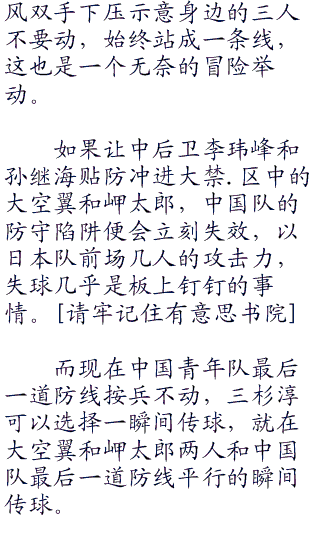 风双手下压示意身边的三人
不要动，始终站成一条线，
这也是一个无奈的冒险举
动。
如果让中后卫李玮峰和
孙继海贴防冲进大禁.区中的
大空翼和岬太郎，中国队的
防守陷阱便会立刻失效，以
日本队前场几人的攻击力，
失球几乎是板上钉钉的事
情。[请牢记住有意思书院]
而现在中国青年队最后
一道防线按兵不动，三杉淳
可以选择一瞬间传球，就在
大空翼和岬太郎两人和中国
队最后一道防线平行的瞬间
传球。